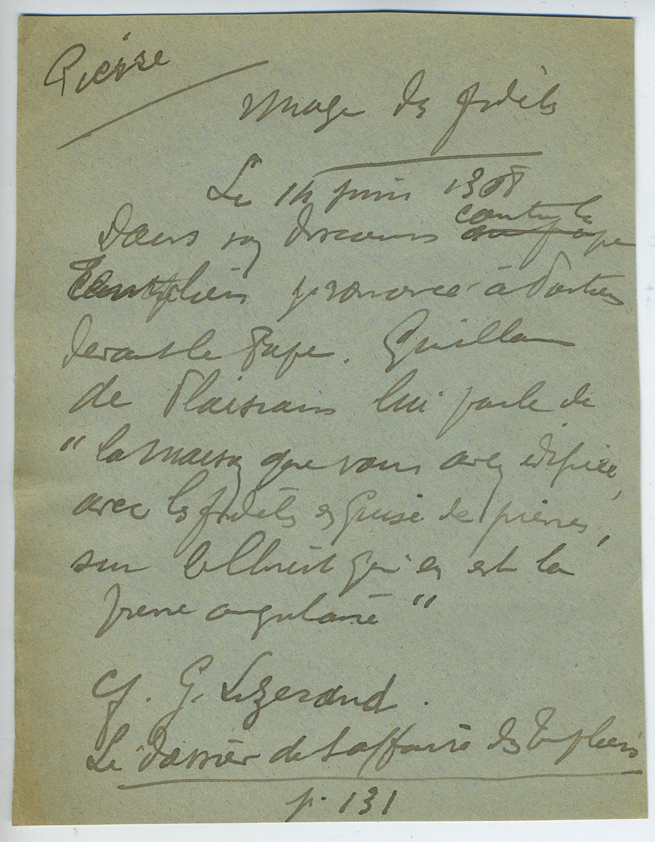 Pierre
image des fidèles
Le 14 juin 1308
Dans son discours contre les
Templiers prononcé à Poitiers
devant le Pape. Guillaume
de Plaisians lui parle de
"la maison que vous avez édifiée,
avec les fidèles en guise de pierres,
sur le Christ qui en est la
pierre angulaire"
cf. G. Lizerand.
Le dossier de l'affaire des Templiers
p. 131